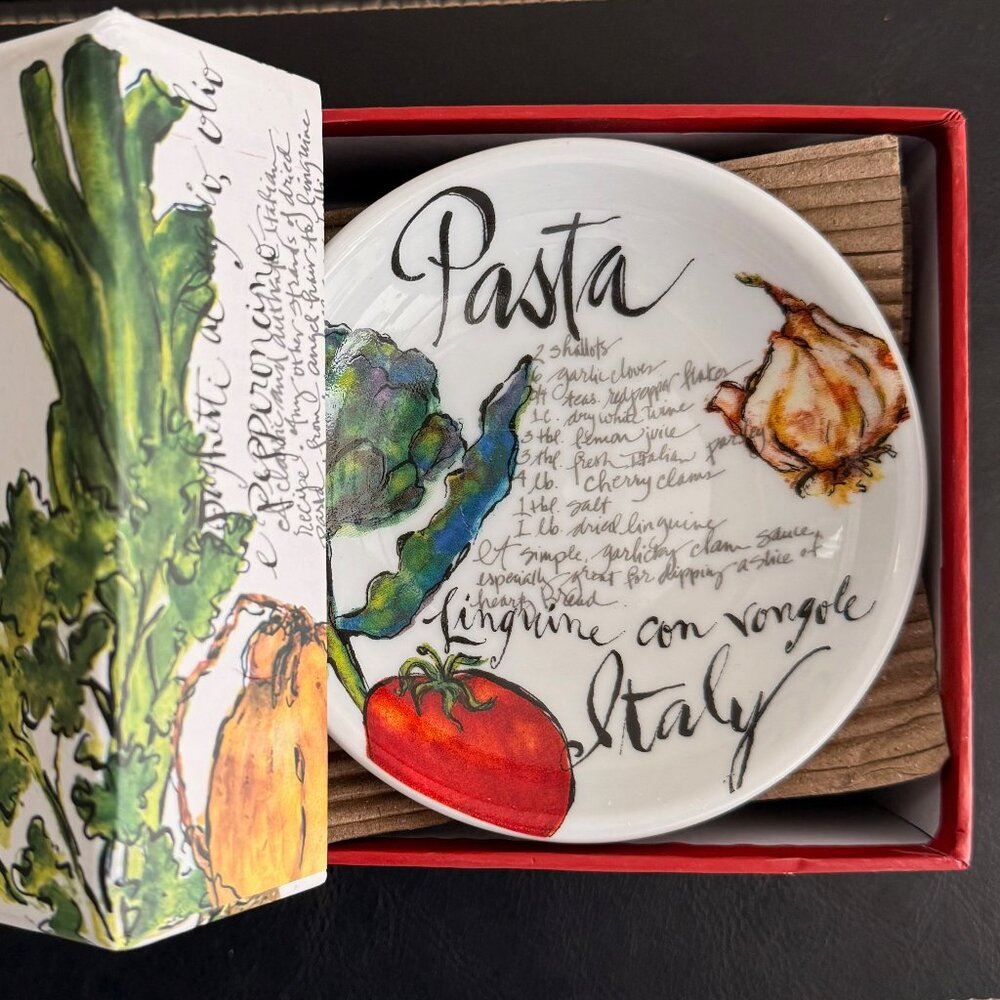 spaghetti al aglio, olio
e Pepparoncino
classic and authentic Italian
recipe. Any other strands of dried
pasta from angel hair to linguine
Pasta
2 shallots
6 garlic cloves
teas. red pepper flakes
1 c. dry white wine
3 tbl. lemon juice
3 tbl. fresh Italian parsley
4 lb. cherry clams
1 tbl. salt
1 lb. dried linguine
A simple, garlicky clam sauce,
especially great for dipping a slice of
hearty bread.
Linguine con vongole
Italy